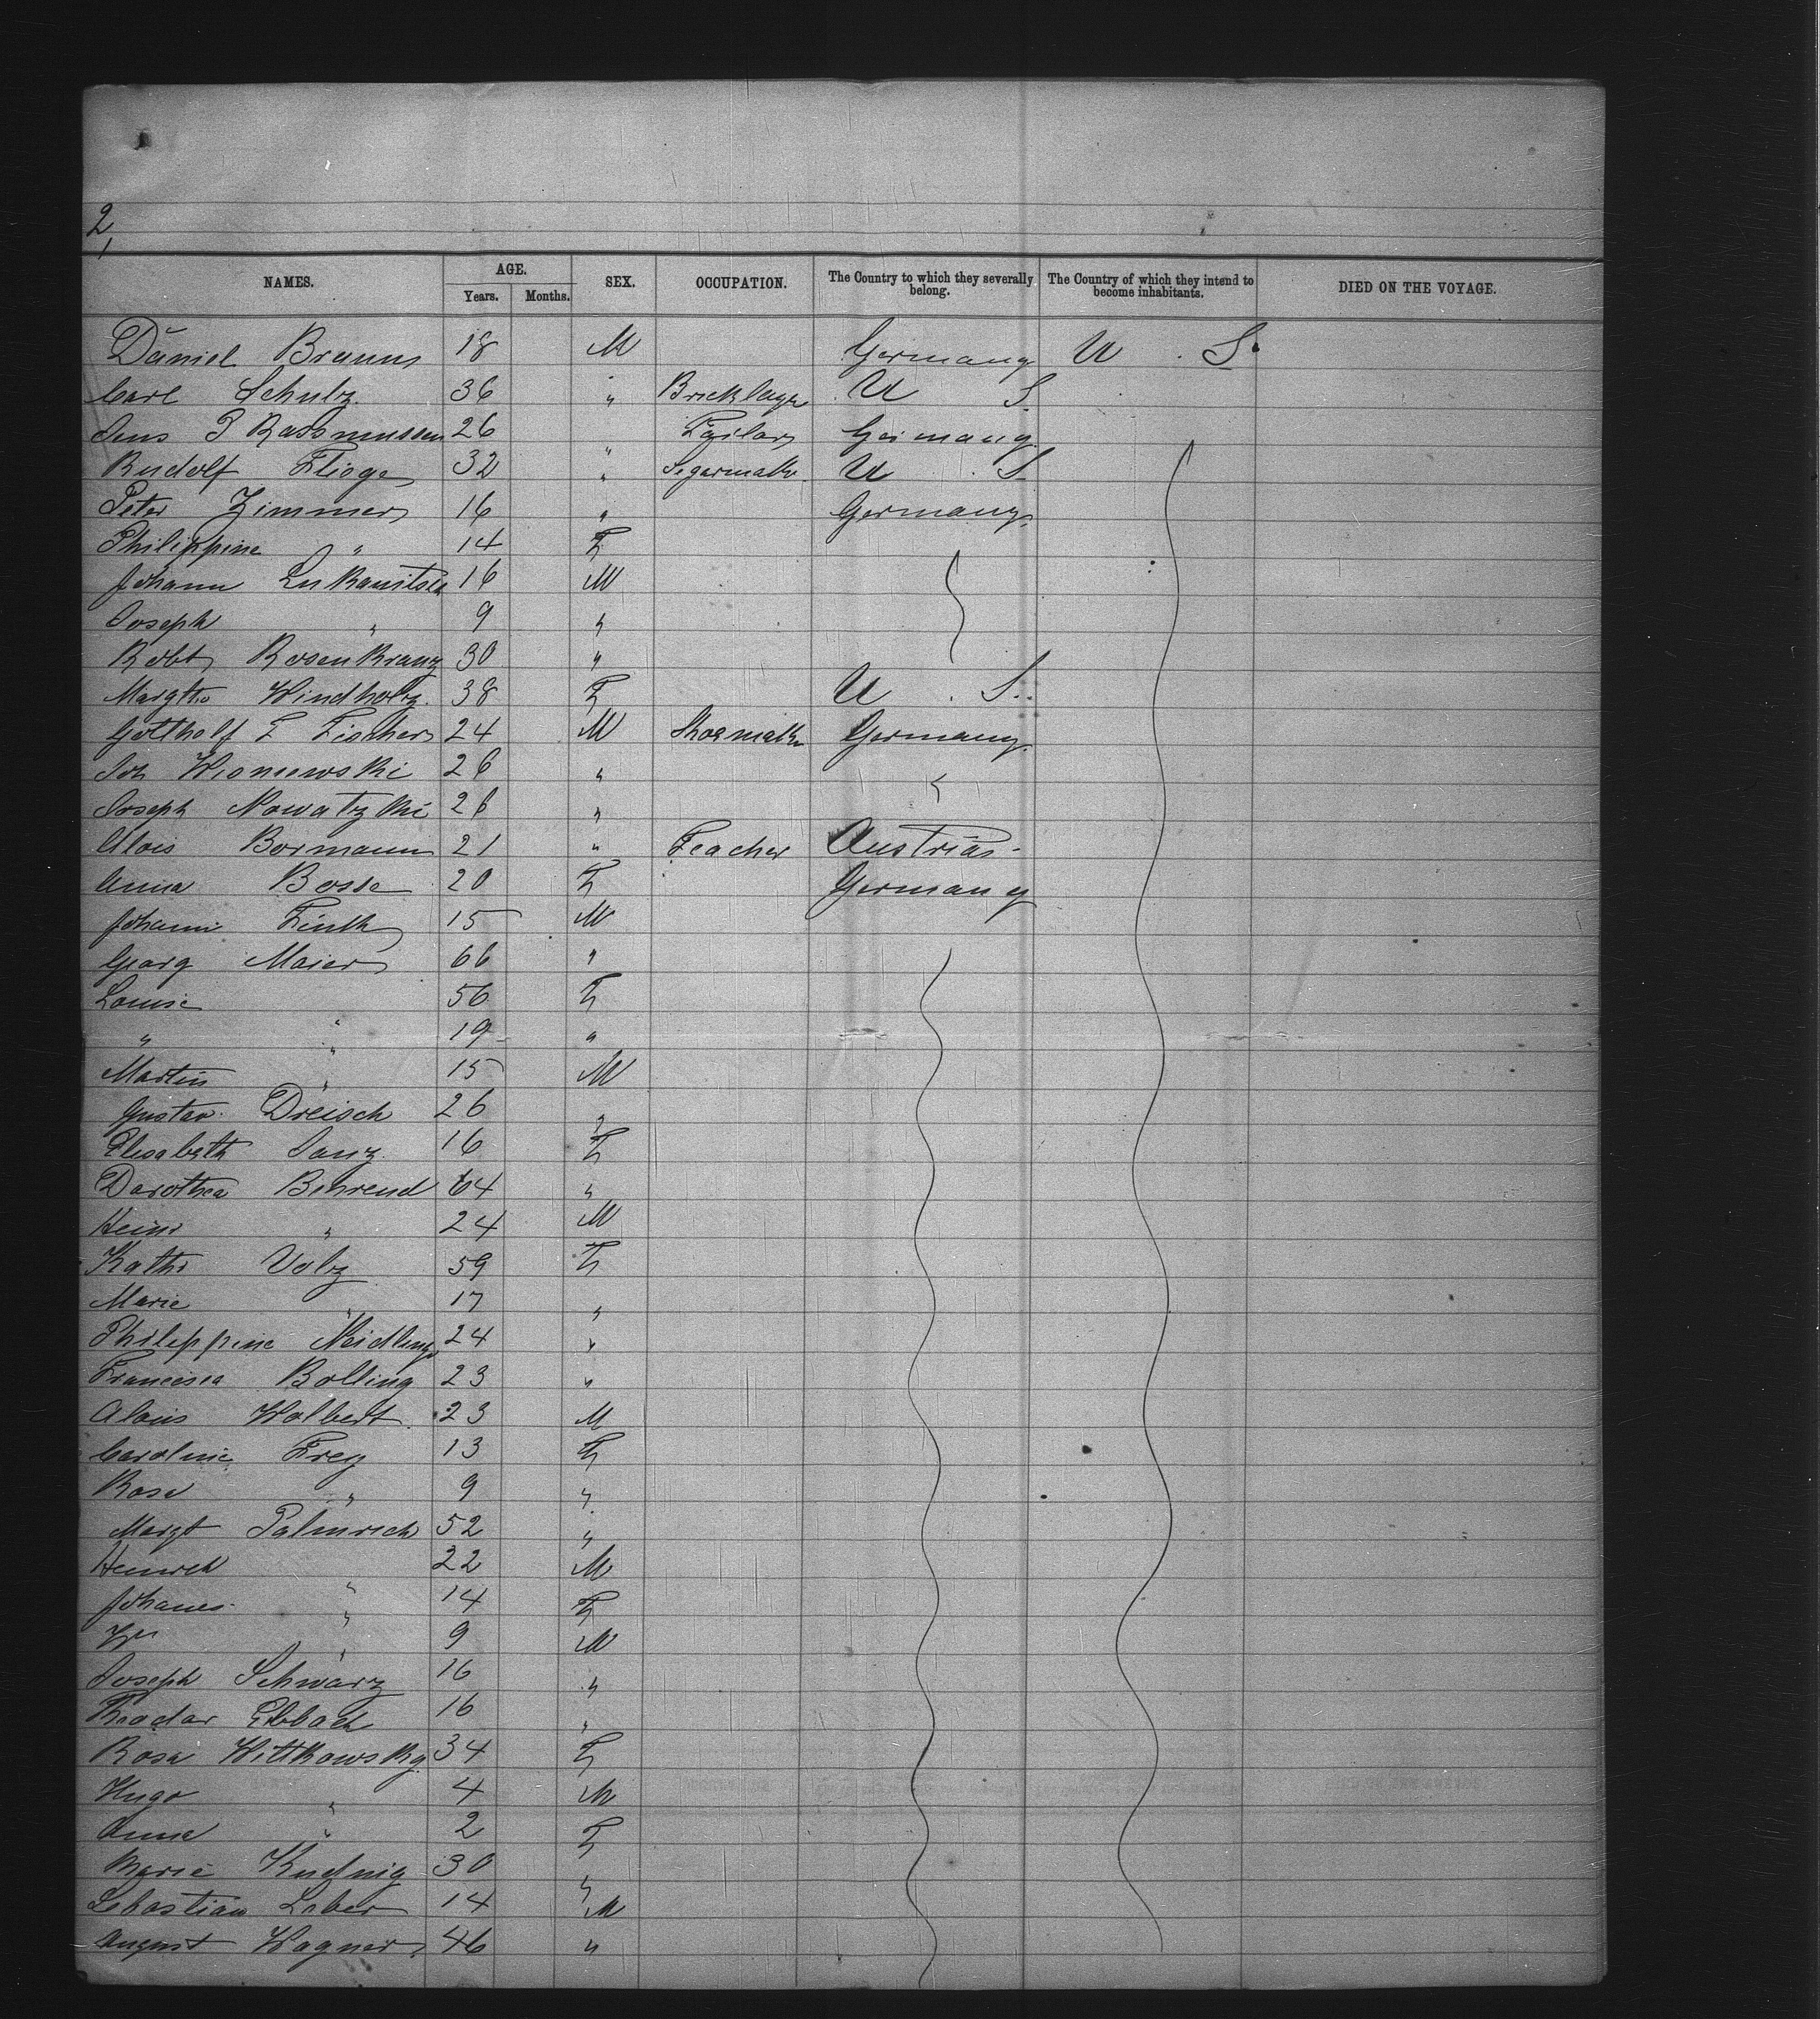 2
NAMES. AGE. Years. Months. SEX. OCCUPATION. The Country to which they severally belong. The Country of which they intend to become inhabitants. DIED ON THE VOYAGE.
Daniel Brauns 18 M Germany U . S.
Carl Schulz 36 " Bricklayr U S.
Jens P Rassmussen 26 " Tailor Germany
Rudolf Fliege 32 " Segarmakr U . S
Peter Zimmer 16 " Germany
Philippine " 14 F
Johann 16 M
Joseph " 9 "
Robt Rosenkranz 30 "
Margthe Windholz 38 F U . S.
Gotthelf E Fischer 24 M Shoemakr Germany
Joh Wisniewski 26 "
Joseph Nowatzki 26 "
Alois Bormann 21 " Teacher Austria
Anna Bosse 20 F Germany
Johann 15 M
Georg Maier 66 "
Louise " 56 F
" " 19 "
Martin " 15 M
Gustav Dreisch 26 "
Elisabeth Janz 16 F
Dorothea Behrend 64 "
Heinr " 24 M
Kathr Volz 59 F
Marie " 17 "
Philippine Neidlingr 24 "
Francisca Bolling 23 "
Alois Wolbert 23 M
Caroline Frey 13 F
Rosa " 9 "
Margt 52 "
Heinrch " 22 M
Johanes " 14 F
Wm " 9 M
Joseph Schwarz 16 "
Theodor 16 "
Rosa Wittkowsky 34 F
Hugo " 4 M
Anna " 2 F
Marie Kudnig 30 "
Sebastian Leber 14 M
August Wagner 46 "